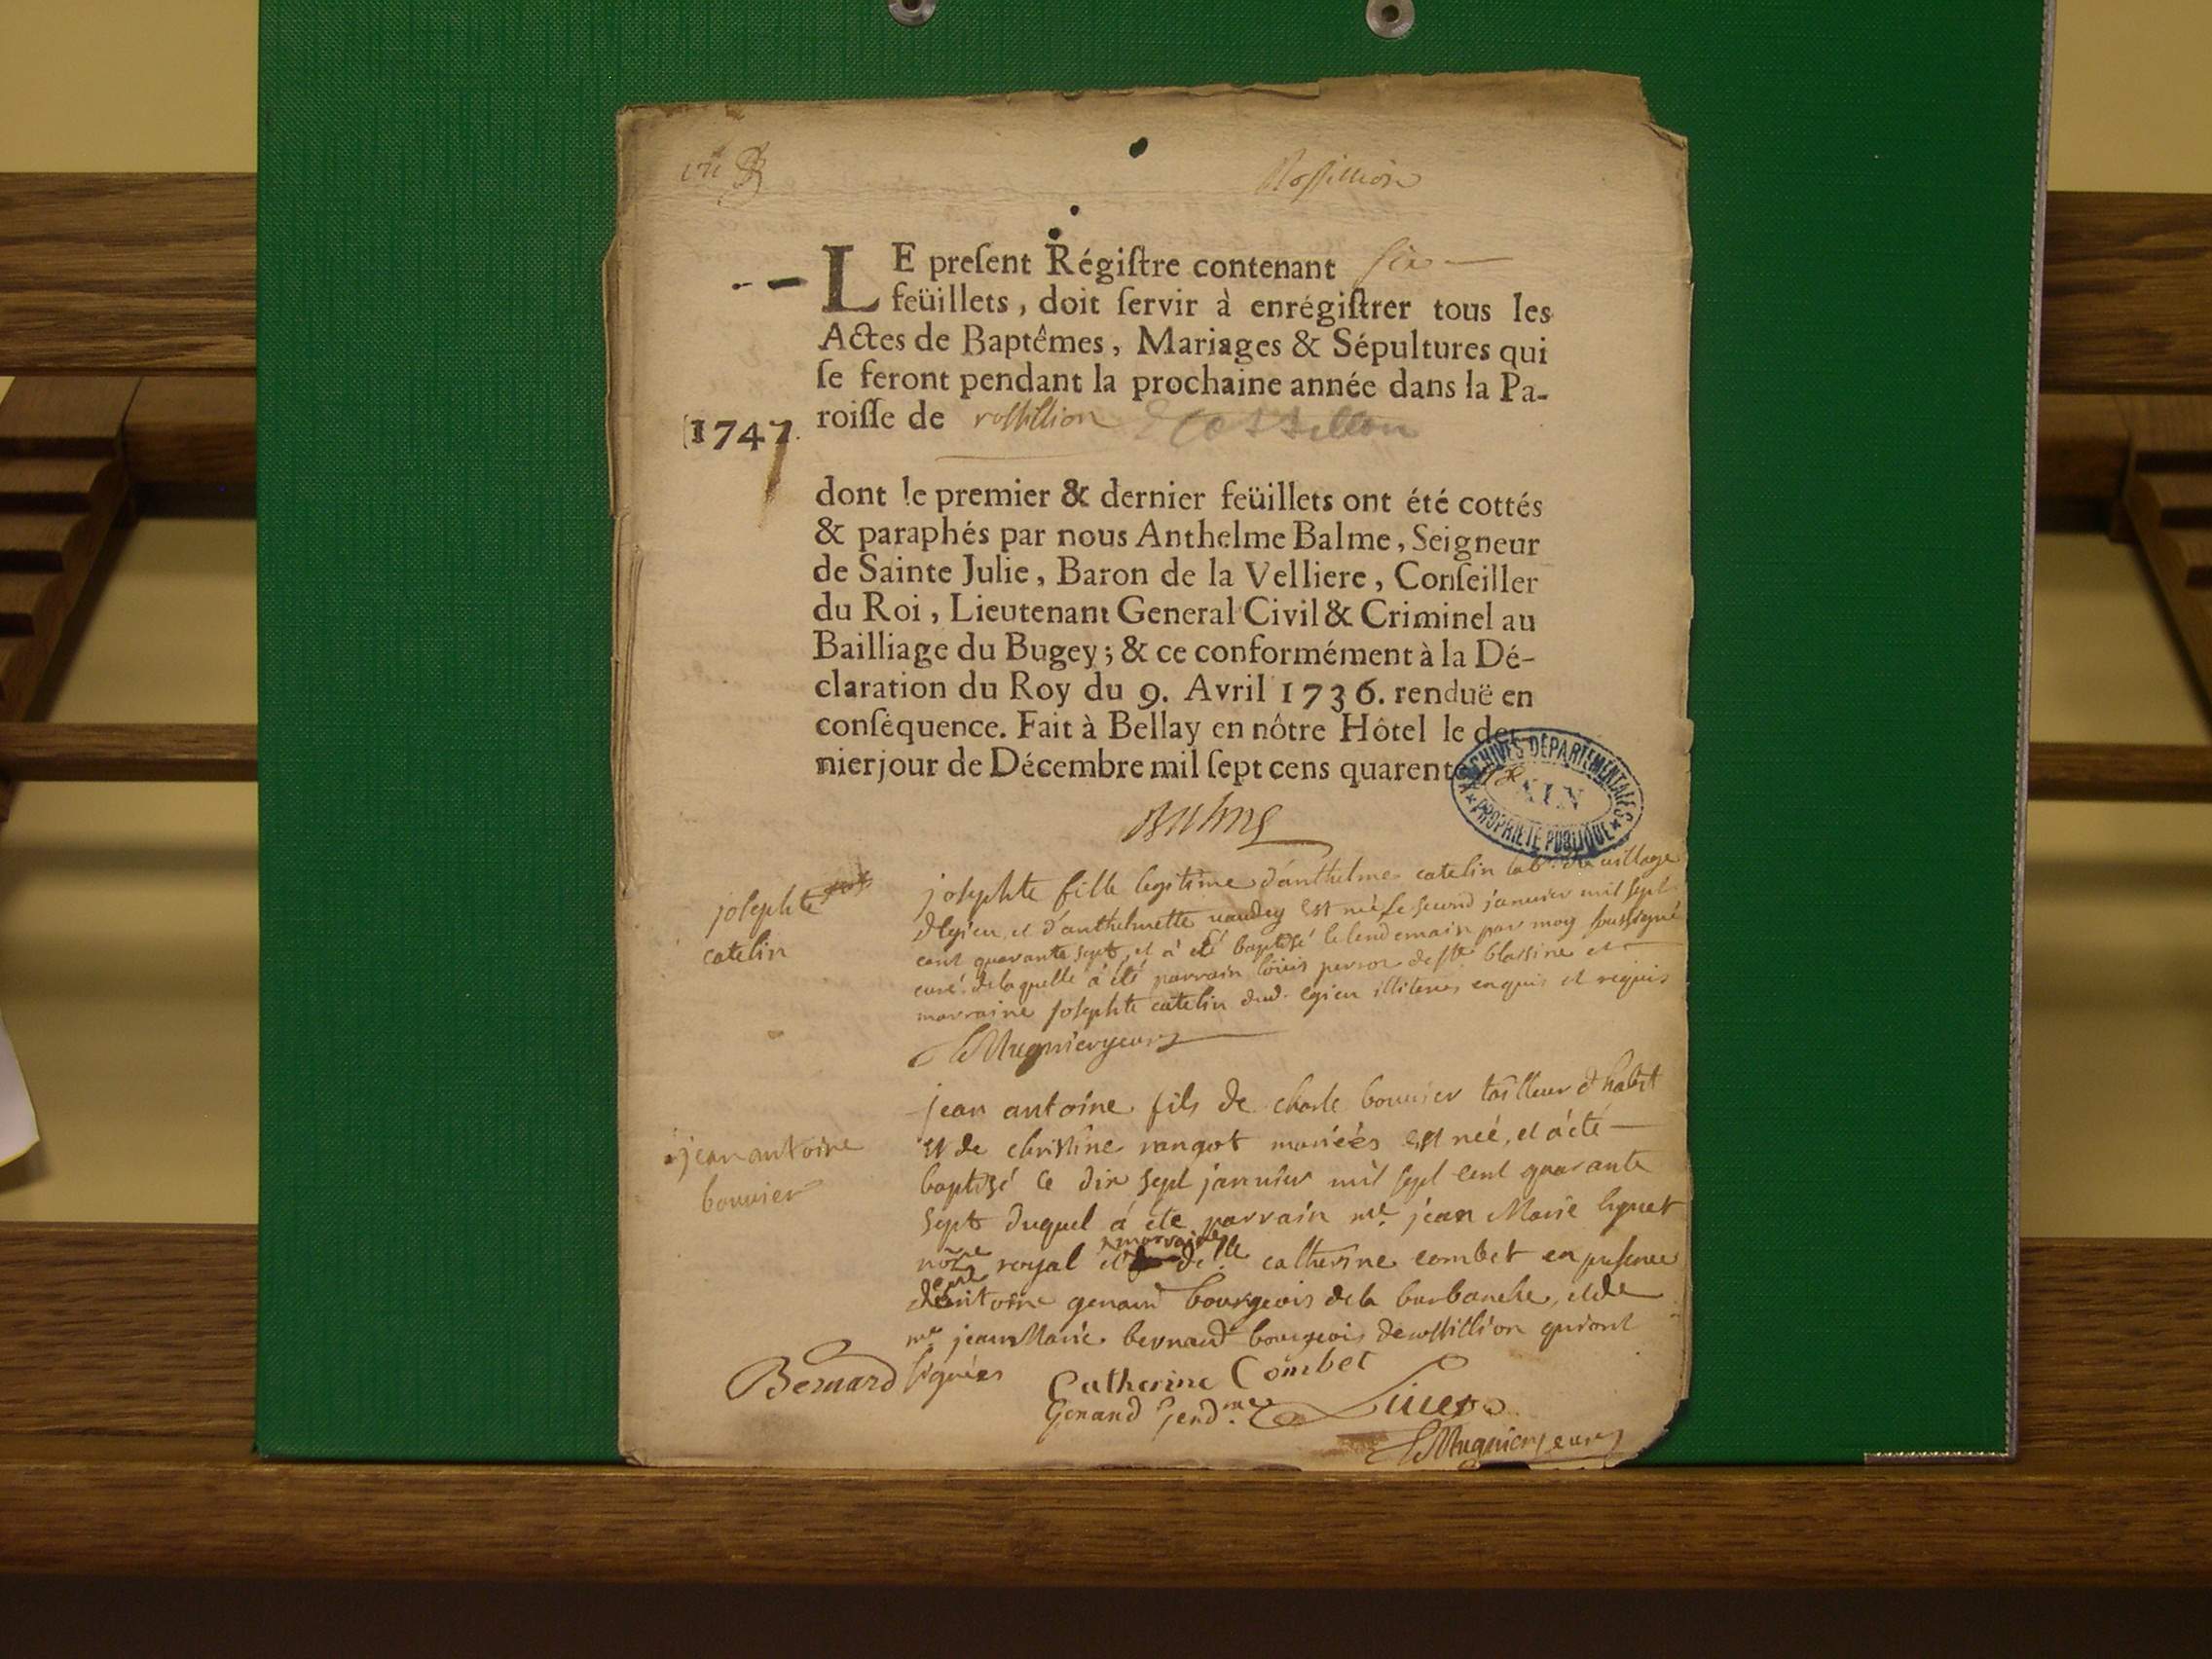 Rossillion
LE preſent Régiſtre contenant six
feüillets, doit ſervir à enrégiſtrer tous les
Actes de Baptêmes, Mariages & Sépultures qui
ſe feront pendant la prochaine année dans la Pa-
roiſſe de rossillion Rossillon
1747.
dont le premier & dernier feüillets ont été cottés
& paraphés par nous Anthelme Balme, Seigneur
de Sainte Julie, Baron de la Velliere, Conſeiller
du Roi, Lieutenant General Civil & Criminel au
Bailliage du Bugey; & ce conformément à la Dé-
claration du Roy du 9. Avril 1736. renduë en
conſéquence. Fait à Bellay en nôtre Hôtel le der-
nier jour de Décembre mil ſept cens quarente six
ARCHIVES DÉPARTEMENTALES
AIN
PROPRIÉTÉ PUBLIQUE
Balme
josephte
catelin
josephte fille legitime d'anthelme catelin lab. du village
d'Egieu et d'anthelmette vaudey est né le second janvier mil sept
cent quarante sept, et à été baptisé le lendemain par moy soussigné
curé. de laquelle à été parrain loüis perror de ste blassine et
marraine josephte catelin dud. egieu illiterés enquis et requis
Mugnier curé
jean antoine
bouvier
jean antoine fils de charle bouvier tailleur d'habit
et de christine rangot mariées est neé, et a été
baptisé le dix sept janvier mil sept cent quarante
sept duquel a été parrain me. jean Marie liguet
nore royal et marraine delle catherine combet en presence
de antoine genand bourgeois de la burbanche, et de
me jean Marie bernard bourgeois de rossillion qui ont
signées
Bernard
Catherine Combet
Genand gendme
Mugnier curé